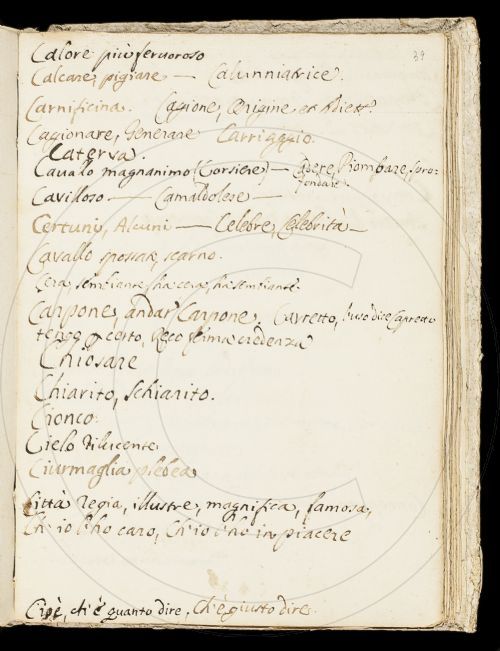 39
Calore più fervoroso
Calcare, pigiare — Calunniatrice.
Carnificina. Cagione, Origine et
Cagionare, Generare Carriaggio.
Caterva.
Cavallo magnanimo (Corsiere) — Cadere, Piombare, spro-
fondare.
Cavilloso — Camaldolese —
Certuni, Alcuni — Celebre, Celebrità —
Cavallo possar, scarno.
Cera, sembiante, ha cera, ha sembiante.
Carpone, andar Carpone, Cavretto,
tengo p certo,
Chiosare
Chiarito, schiarito.
Cionco.
Cielo rilucente
Ciurmaglia plebea
Città regia, illustre, magnifica, famosa,
Ch' io l'ho caro, Ch'io l'hò in piacere
Cioè, ch'è quanto dire, ch'è giusto dire.